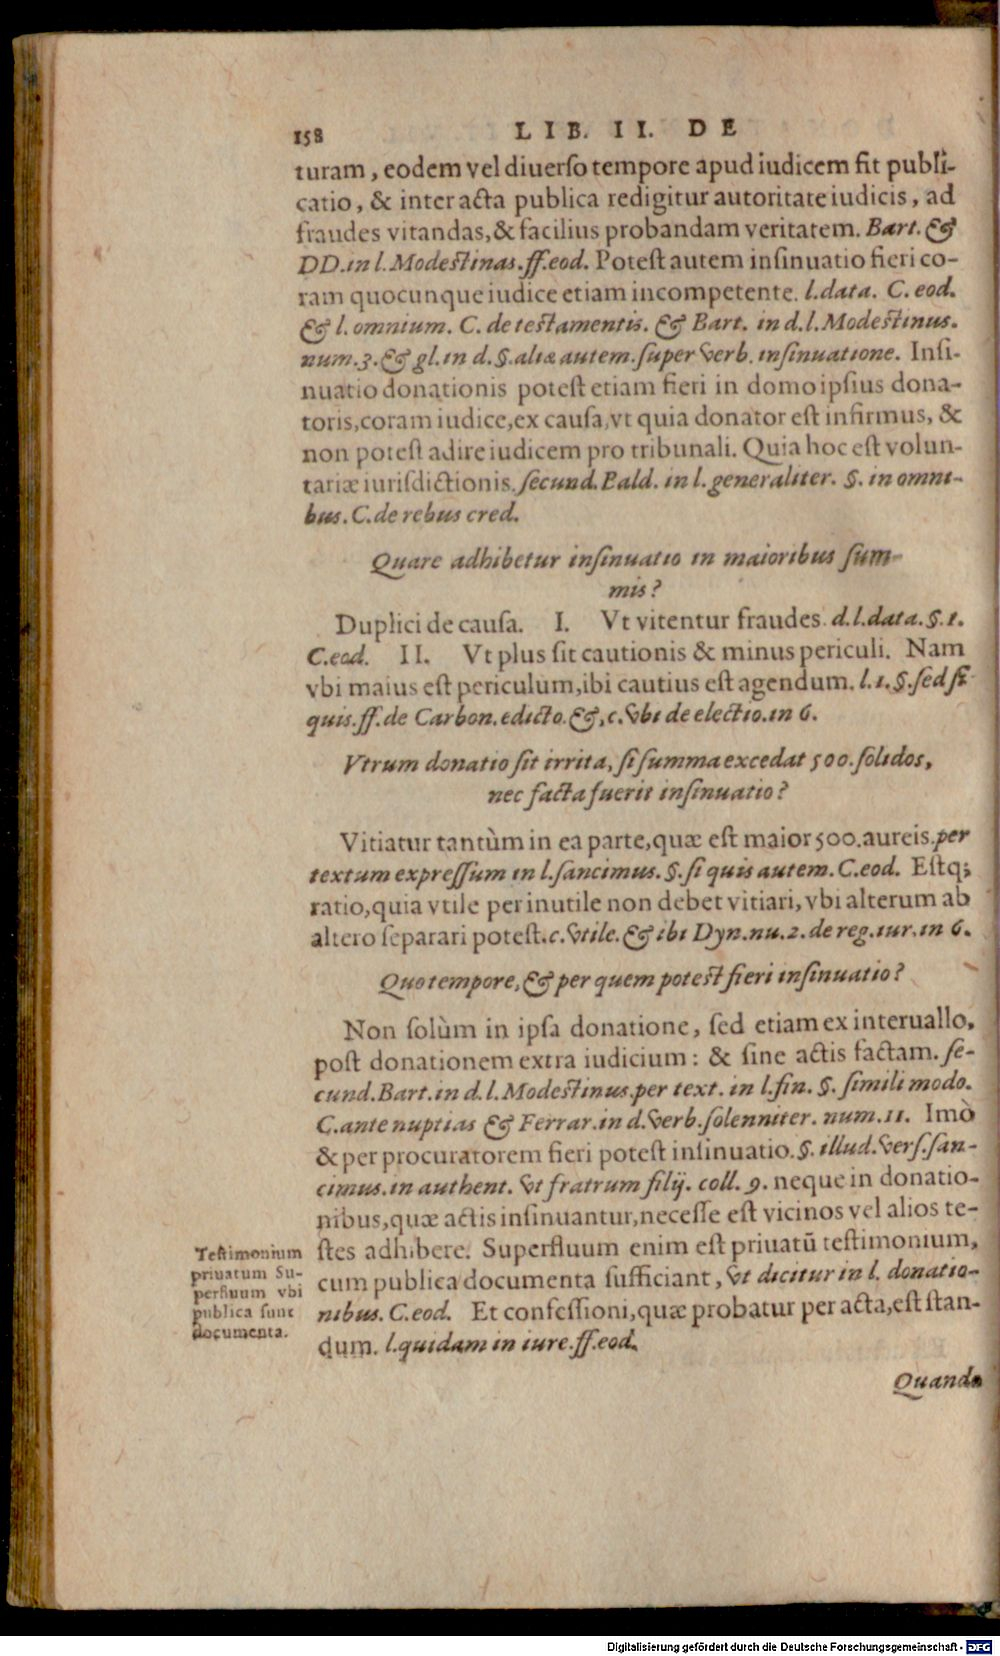 158 LIB. II. DE
turam, eodem vel diuerſo tempore apud iudicem fit publi-
catio, & inter acta publica redigitur autoritate iudicis, ad
fraudes vitandas, & facilius probandam veritatem. Bart. &
DD. in l. Modestinas. ff. eod. Poteſt autem inſinuatio fieri co-
ram quocunque iudice etiam incompetente. l. data. C. eod.
& l. omnium. C. de testamentis. & Bart. in d. l. Modestinus.
num. 3. & gl. in d. §. aliæ autem. ſuper verb. inſinuatione. Inſi-
nuatio donationis poteſt etiam fieri in domo ipſius dona-
toris, coram iudice, ex cauſa, vt quia donator eſt infirmus, &
non poteſt adire iudicem pro tribunali. Quia hoc eſt volun-
tariæ iuriſdictionis. ſecund. Bald. in l. generaliter. §. in omni-
bus. C. de rebus cred.
Quare adhibetur inſinuatio in maioribus ſum-
mis?
Duplici de cauſa. I. Vt vitentur fraudes. d. l. data. §. 1.
C. eod. II. Vt plus ſit cautionis & minus periculi. Nam
vbi maius eſt periculum, ibi cautius eſt agendum. l. 1. §. ſed ſi
quis. ff. de Carbon. edicto. &, c. vbi de electio. in 6.
Vtrum donatio ſit irrita, ſi ſumma excedat 500. ſolidos,
nec facta fuerit inſinuatio?
Vitiatur tantùm in ea parte, quæ eſt maior 500. aureis. per
textum expreſſum in l. ſancimus. §. ſi quis autem. C. eod. Eſtq;
ratio, quia vtile per inutile non debet vitiari, vbi alterum ab
altero ſeparari poteſt. c. vtile. & ibi Dyn. nu. 2. de reg. iur. in 6.
Quo tempore, & per quem potest fieri inſinuatio?
Non ſolùm in ipſa donatione, ſed etiam ex interuallo,
poſt donationem extra iudicium: & ſine actis factam. ſe-
cund. Bart. in d. l. Modestinus. per text. in l. fin. §. ſimili modo.
C. ante nuptias & Ferrar. in d. verb. ſolenniter. num. 11. Imò
& per procuratorem fieri poteſt inſinuatio. §. illud. verſ. ſan-
cimus. in authent. vt fratrum filij. coll. 9. neque in donatio-
nibus, quæ actis inſinuantur, neceſſe eſt vicinos vel alios te-
ſtes adhibere. Superfluum enim eſt priuatũ teſtimonium,
cum publica documenta ſufficiant, vt dicitur in l. donatio-
nibus. C. eod. Et confeſſioni, quæ probatur per acta, eſt ſtan-
dum. l. quidam in iure. ff. eod.
Teſtimonium
priuatum Su-
perfluum vbi
publica ſunt
documenta.
Quando
Digitalisierung gefördert durch die Deutsche Forschungsgemeinschaft - DFG